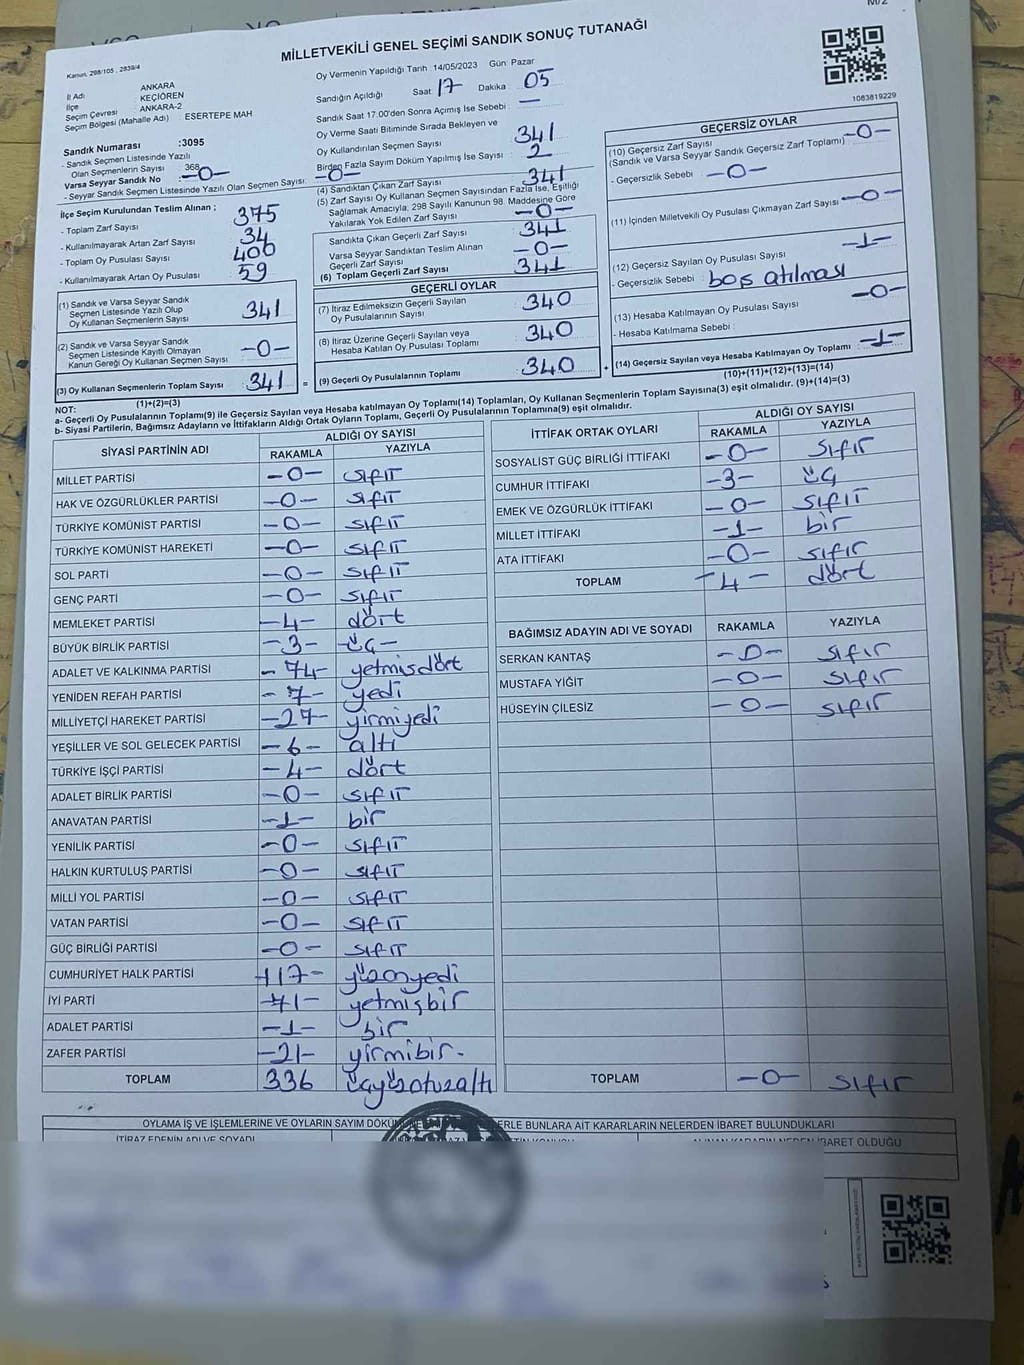 MİLLETVEKİLİ GENEL SEÇİMİ SANDIK SONUÇ TUTANAĞI
Kanun, 298/105 , 2839/4
İl Adı ANKARA
İlçe KEÇİÖREN
Seçim Çevresi ANKARA-2
Seçim Bölgesi (Mahalle Adı) : ESERTEPE MAH
Sandık Numarası :3095
- Sandık Seçmen Listesinde Yazılı
Olan Seçmenlerin Sayısı : 368
Varsa Seyyar Sandık No -0-
- Seyyar Sandık Seçmen Listesinde Yazılı Olan Seçmen Sayısı: -0-
İlçe Seçim Kurulundan Teslim Alınan :
- Toplam Zarf Sayısı 375
- Kullanılmayarak Artan Zarf Sayısı 34
- Toplam Oy Pusulası Sayısı 400
- Kullanılmayarak Artan Oy Pusulası 59
(1) Sandık ve Varsa Seyyar Sandık
Seçmen Listesinde Yazılı Olup
Oy Kullanan Seçmenlerin Sayısı 341
(2) Sandık ve Varsa Seyyar Sandık
Seçmen Listesinde Kayıtlı Olmayan
Kanun Gereği Oy Kullanan Seçmen Sayısı -0-
(3) Oy Kullanan Seçmenlerin Toplam Sayısı 341 =
(1)+(2)=(3)
Oy Vermenin Yapıldığı Tarih :14/05/2023 Gün: Pazar
Sandığın Açıldığı Saat 17 Dakika : 05
Sandık Saat 17.00'den Sonra Açılmış İse Sebebi : —
Oy Verme Saati Bitiminde Sırada Bekleyen ve
Oy Kullandırılan Seçmen Sayısı 341
Birden Fazla Sayım Döküm Yapılmış İse Sayısı : 2
(4) Sandıktan Çıkan Zarf Sayısı 341
(5) Zarf Sayısı Oy Kullanan Seçmen Sayısından Fazla İse, Eşitliği
Sağlamak Amacıyla, 298 Sayılı Kanunun 98. Maddesine Göre
Yakılarak Yok Edilen Zarf Sayısı -0-
Sandıkta Çıkan Geçerli Zarf Sayısı 341
Varsa Seyyar Sandıktan Teslim Alınan
Geçerli Zarf Sayısı -0-
(6) Toplam Geçerli Zarf Sayısı 341
GEÇERLİ OYLAR
(7) İtiraz Edilmeksizin Geçerli Sayılan
Oy Pusulalarının Sayısı 340
(8) İtiraz Üzerine Geçerli Sayılan veya
Hesaba Katılan Oy Pusulası Toplamı 340
(9) Geçerli Oy Pusulalarının Toplamı 340 +
1083819229
GEÇERSİZ OYLAR
(10) Geçersiz Zarf Sayısı -0-
(Sandık ve Varsa Seyyar Sandık Geçersiz Zarf Toplamı)
- Geçersizlik Sebebi : -0-
(11) İçinden Milletvekili Oy Pusulası Çıkmayan Zarf Sayısı -0-
(12) Geçersiz Sayılan Oy Pusulası Sayısı -1-
- Geçersizlik Sebebi : boş atılması
(13) Hesaba Katılmayan Oy Pusulası Sayısı -0-
- Hesaba Katılmama Sebebi :
(14) Geçersiz Sayılan veya Hesaba Katılmayan Oy Toplamı -1-
(10)+(11)+(12)+(13)=(14)
NOT:
a- Geçerli Oy Pusulalarının Toplamı(9) ile Geçersiz Sayılan veya Hesaba katılmayan Oy Toplamı(14) Toplamları, Oy Kullanan Seçmenlerin Toplam Sayısına(3) eşit olmalıdır. (9)+(14)=(3)
b- Siyasi Partilerin, Bağımsız Adayların ve İttifakların Aldığı Ortak Oyların Toplamı, Geçerli Oy Pusulalarının Toplamına(9) eşit olmalıdır.
SİYASİ PARTİNİN ADI ALDIĞI OY SAYISI
RAKAMLA YAZIYLA
MİLLET PARTİSİ -0- sıfır
HAK VE ÖZGÜRLÜKLER PARTİSİ -0- sıfır
TÜRKİYE KOMÜNİST PARTİSİ -0- sıfır
TÜRKİYE KOMÜNİST HAREKETİ -0- sıfır
SOL PARTİ -0- sıfır
GENÇ PARTİ -0- sıfır
MEMLEKET PARTİSİ -4- dört
BÜYÜK BİRLİK PARTİSİ -3- üç-
ADALET VE KALKINMA PARTİSİ -74- yetmişdört
YENİDEN REFAH PARTİSİ -7- yedi
MİLLİYETÇİ HAREKET PARTİSİ -27- yirmiyedi
YEŞİLLER VE SOL GELECEK PARTİSİ -6- altı
TÜRKİYE İŞÇİ PARTİSİ -4- dört
ADALET BİRLİK PARTİSİ -0- sıfır
ANAVATAN PARTİSİ -1- bir
YENİLİK PARTİSİ -0- sıfır
HALKIN KURTULUŞ PARTİSİ -0- sıfır
MİLLİ YOL PARTİSİ -0- sıfır
VATAN PARTİSİ -0- sıfır
GÜÇ BİRLİĞİ PARTİSİ -0- sıfır
CUMHURİYET HALK PARTİSİ -117- yüzonyedi
İYİ PARTİ -71- yetmişbir
ADALET PARTİSİ -1- bir
ZAFER PARTİSİ -21- yirmibir-
TOPLAM 336 üçyüzotuzaltı
İTTİFAK ORTAK OYLARI ALDIĞI OY SAYISI
RAKAMLA YAZIYLA
SOSYALİST GÜÇ BİRLİĞİ İTTİFAKI -0- sıfır
CUMHUR İTTİFAKI -3- üç
EMEK VE ÖZGÜRLÜK İTTİFAKI -0- sıfır
MİLLET İTTİFAKI -1- bir
ATA İTTİFAKI -0- sıfır
TOPLAM -4- dört
BAĞIMSIZ ADAYIN ADI VE SOYADI RAKAMLA YAZIYLA
SERKAN KANTAŞ -0- sıfır
MUSTAFA YİĞİT -0- sıfır
HÜSEYİN ÇİLESİZ -0- sıfır
TOPLAM -0- sıfır
OYLAMA İŞ VE İŞLEMLERİNE VE OYLARIN SAYIM DÖKÜM ERLE BUNLARA AİT KARARLARIN NELERDEN İBARET BULUNDUKLARI
İTİRAZ EDENİN ADI VE SOYADI